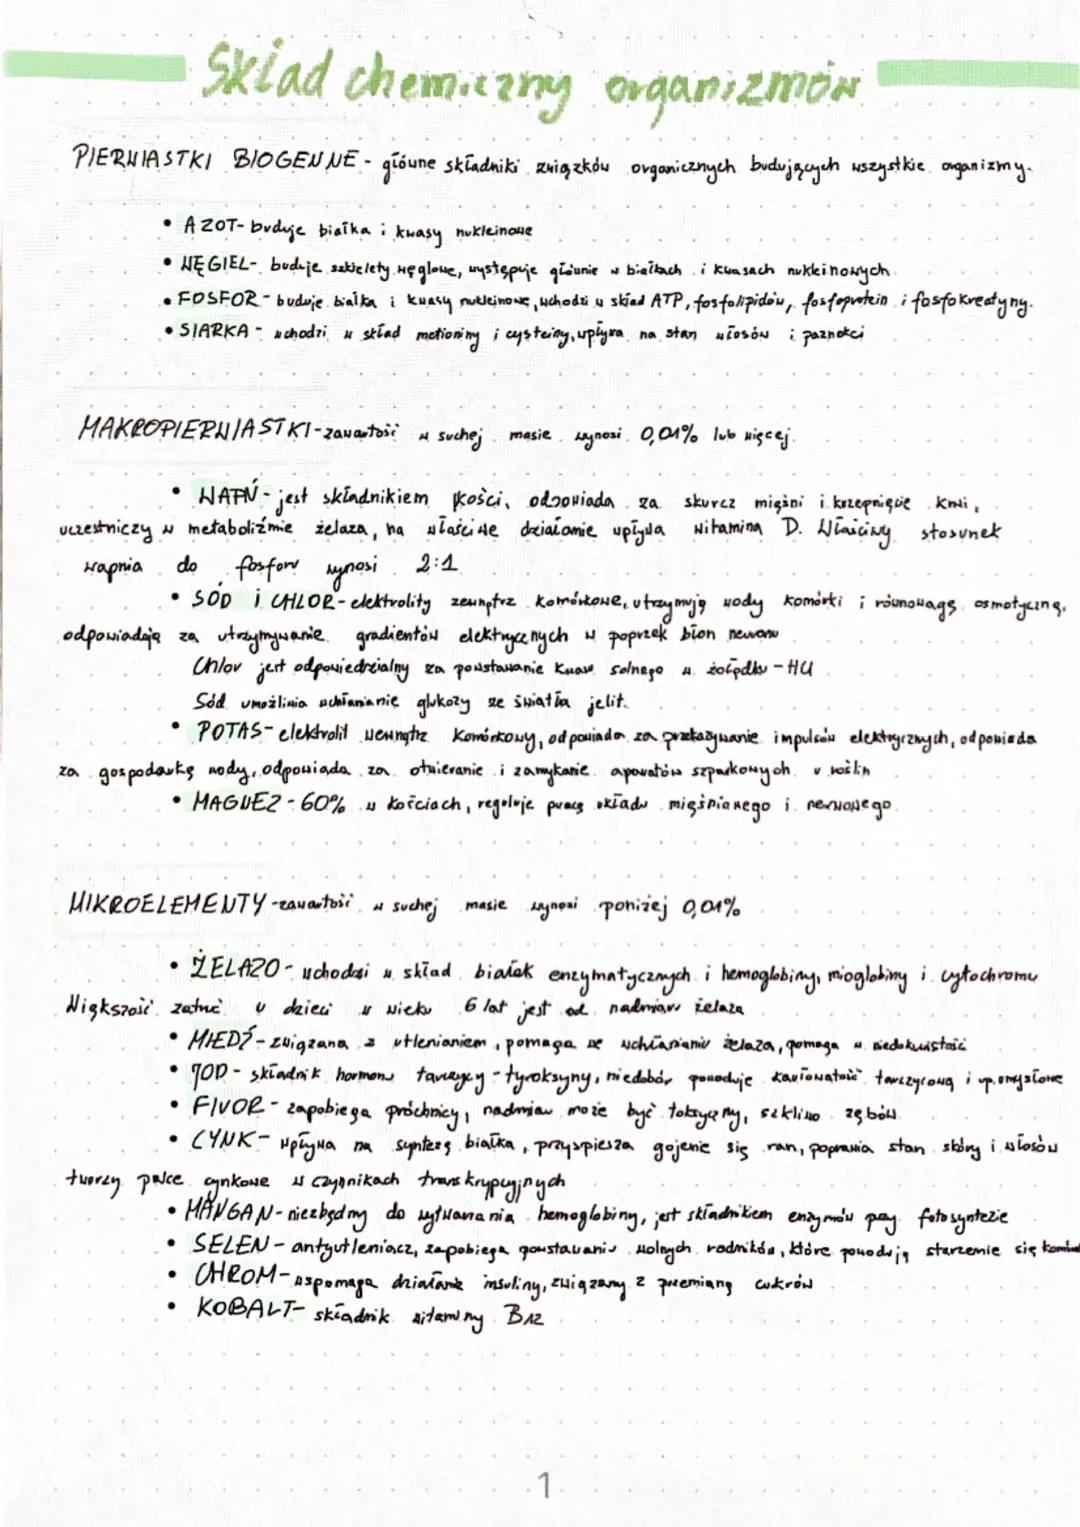 Skład chemiczny organizmów
PIERWIASTKI BIOGENNE - główne składniki związków organicznych budujących wszystkie organizmy.
• AZOT- buduje białka i kwasy nukleinowe
• WĘGIEL- buduje szkielety węglowe, występuje głównie w białkach i kwasach nukleinowych
• FOSFOR - buduje białka i kwasy nukleinowe, wchodzi w skład ATP, fosfolipidów, fosfoprotein i fosfokreatyny.
• SIARKA - wchodzi w skład metioniny i cysteiny, wpływa na stan włosów i paznokci
MAKROPIERWIASTKI - zawartość w suchej masie wynosi 0,01% lub więcej
• WAPŃ - jest składnikiem kości, odpowiada za skurcz mięśni i krzepnięcie krwi,
uczestniczy w metaboliźmie żelaza, na właściwe działanie wpływa witamina D. Właściwy stosunek
wapnia do fosforu wynosi 2:1
• SÓD i CHLOR - elektrolity zewnątrz komórkowe, utrzymują wody komórki i równowagę osmotyczną,
odpowiadają za utrzymywanie gradientów elektrycznych w poprzek błon
Chlor jest odpowiedzialny za powstawanie kwasu solnego w żołądku - HCl
Sód umożliwia wchłanianie glukozy ze światła jelit.
• POTAS - elektrolit wewnątrz komórkowy, odpowiada za przekazywanie impulsów elektrycznych, odpowiada
za gospodarkę wody, odpowiada za otwieranie i zamykanie aparatów szparkowych u roślin
• MAGNEZ - 60% w kościach, reguluje pracę układu mięśniowego i nerwowego
MIKROELEMENTY - zawartość w suchej masie wynosi poniżej 0,01%
• ŻELAZO - wchodzi w skład białek enzymatycznych i hemoglobiny, mioglobiny i cytochromu
Większość zatruć u dzieci w wieku 6 lat jest od nadmiaru żelaza
• MIEDŹ - związana z utlenianiem, pomaga we wchłanianiu żelaza, pomaga w niedokrwistości
• JOD - składnik hormonu tarczycy - tyroksyny, niedobór powoduje tarczycową i up. umysłowe
• FLUOR - zapobiega próchnicy, nadmiar może być toksyczny, szkliwo zębów
• CYNK - wpływa na syntezę białka, przyspiesza gojenie się ran, poprawia stan skóry i włosów
tworzy palce cynkowe w czynnikach transkrypcyjnych
• MANGAN - niezbędny do wytwarzania hemoglobiny, jest składnikiem enzymów przy fotosyntezie
• SELEN - antyutleniacz, zapobiega powstawaniu wolnych rodników, które powodują starzenie się
• CHROM - wspomaga działanie insuliny, związany z przemianą cukrów
• KOBALT - składnik witaminy B12
1